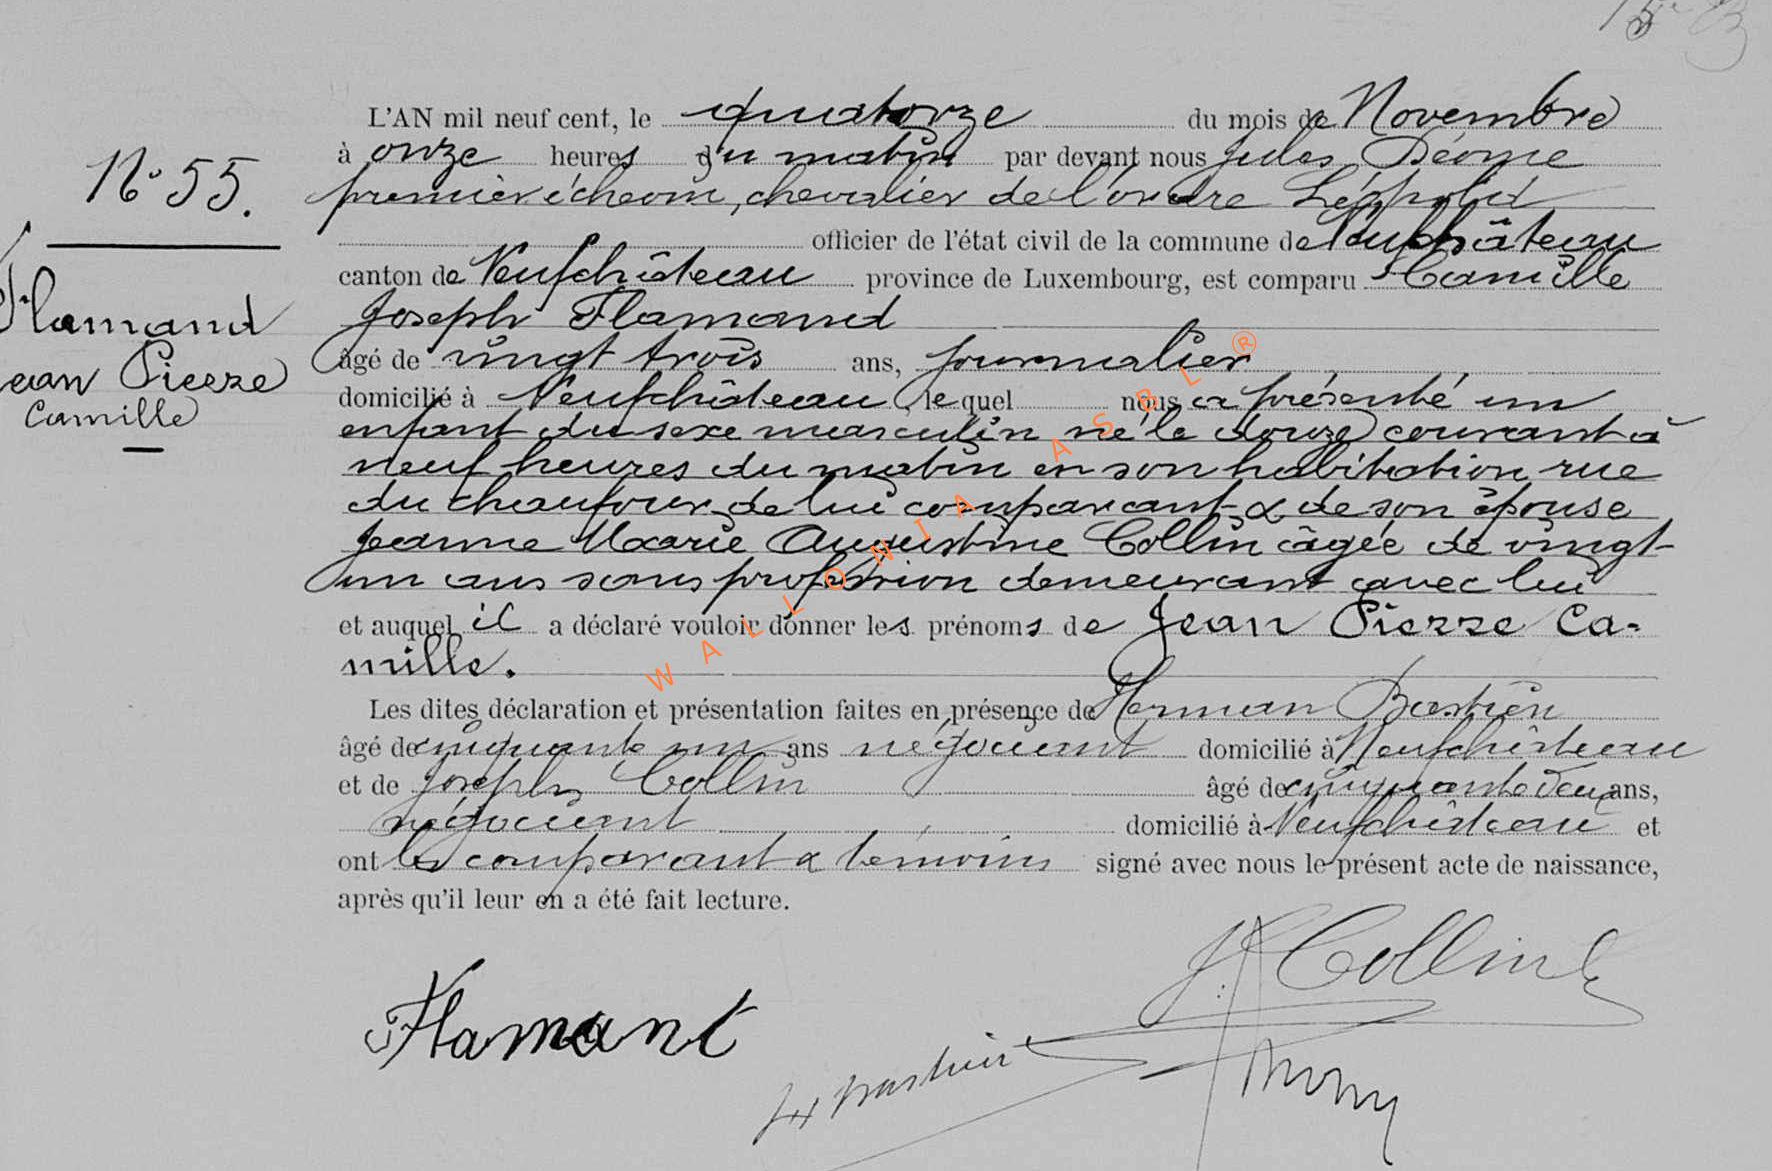 N° 55.
Flamand
Jean Pierre
Camille
L'AN mil neuf cent, le quatorze du mois de Novembre
à onze heures du matin par devant nous Jules
premier échevin, chevalier de l'ordre Léopold
officier de l'état civil de la commune de Neufchâteau
canton de Neufchâteau province de Luxembourg, est comparu Camille
Joseph Flamand
âgé de vingt trois ans, journalier
domicilié à Neufchâteau, lequel nous a présenté un
enfant du sexe masculin né le douze courant à
neuf heures du matin en son habitation rue
du chaufour de lui comparant & de son épouse
Jeanne Marie Augustine Collin âgée de vingt-
un ans sans profession demeurant avec lui
et auquel il a déclaré vouloir donner les prénoms de Jean Pierre Ca-
mille.
Les dites déclaration et présentation faites en présence de Herman Bastien
âgé de cinquante un ans négociant domicilié à Neufchâteau
et de Joseph Collin âgé de cinquante deux ans,
négociant domicilié à Neufchâteau et
ont les comparant & témoins signé avec nous le présent acte de naissance,
après qu'il leur en a été fait lecture.
J. Collin
Flamant
H Bastien
WALLONIA ASBL ®